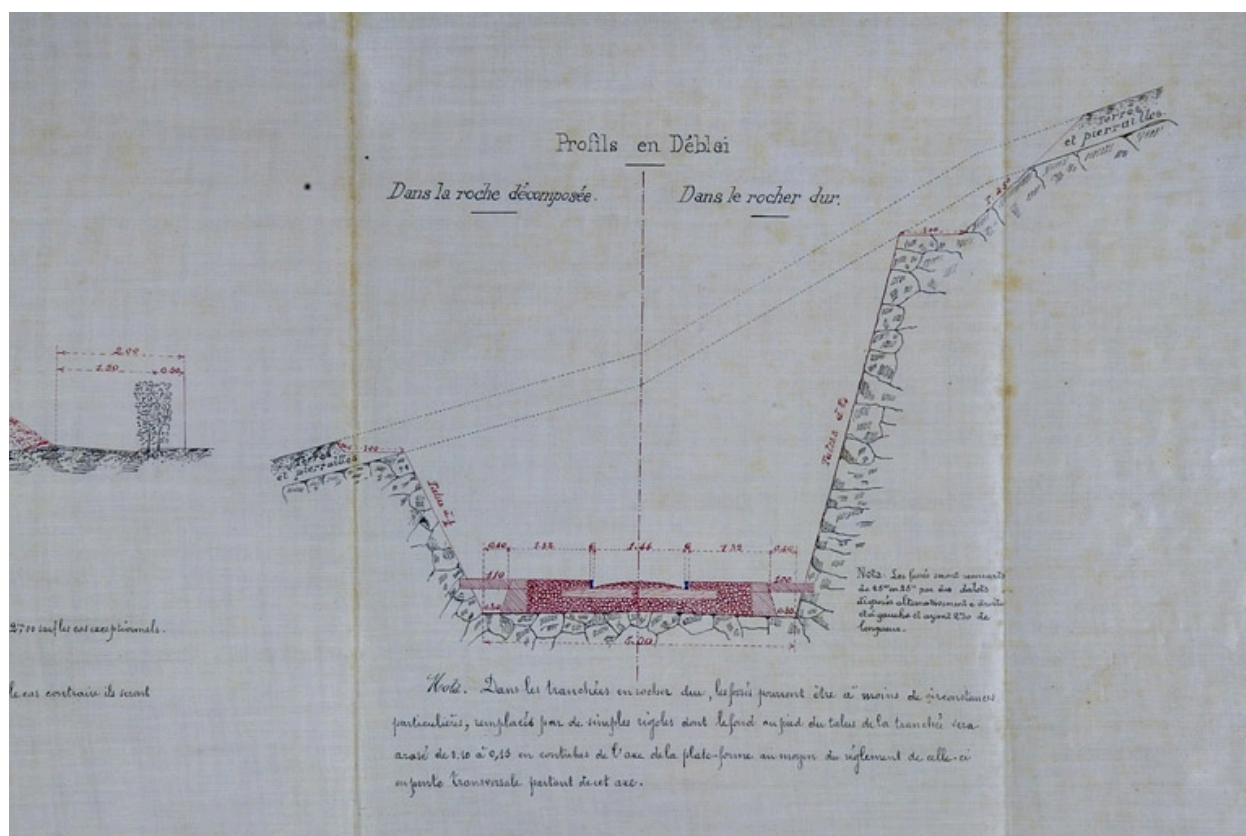 Profils en Déblai
Dans la roche décomposée.
Dans le rocher dur.
Terres
et pierrailles
1.00
2.00
1.50
0.50
Terres
et pierrailles
1.00
Talus à
Talus à
0.60
1.32
1.44
1.32
0.60
1.10
1.00
0.30
0.30
5.00
Nota: Les fossés seront
de 25m en 25m par des dalots
disposés alternativement à droite
et à gauche et ayant de
longueur.
2m00 sauf les cas exceptionnels.
le cas contraire ils seront
Nota. Dans les tranchées en rocher dur, les fossés pourront être à moins de circonstances
particulières, remplacés par de simples rigoles dont le fond au pied du talus de la tranchée sera
arasé de 0.10 à 0,15 en contrebas de l'axe de la plate-forme au moyen du règlement de celle-ci
en pente transversale partant de cet axe.